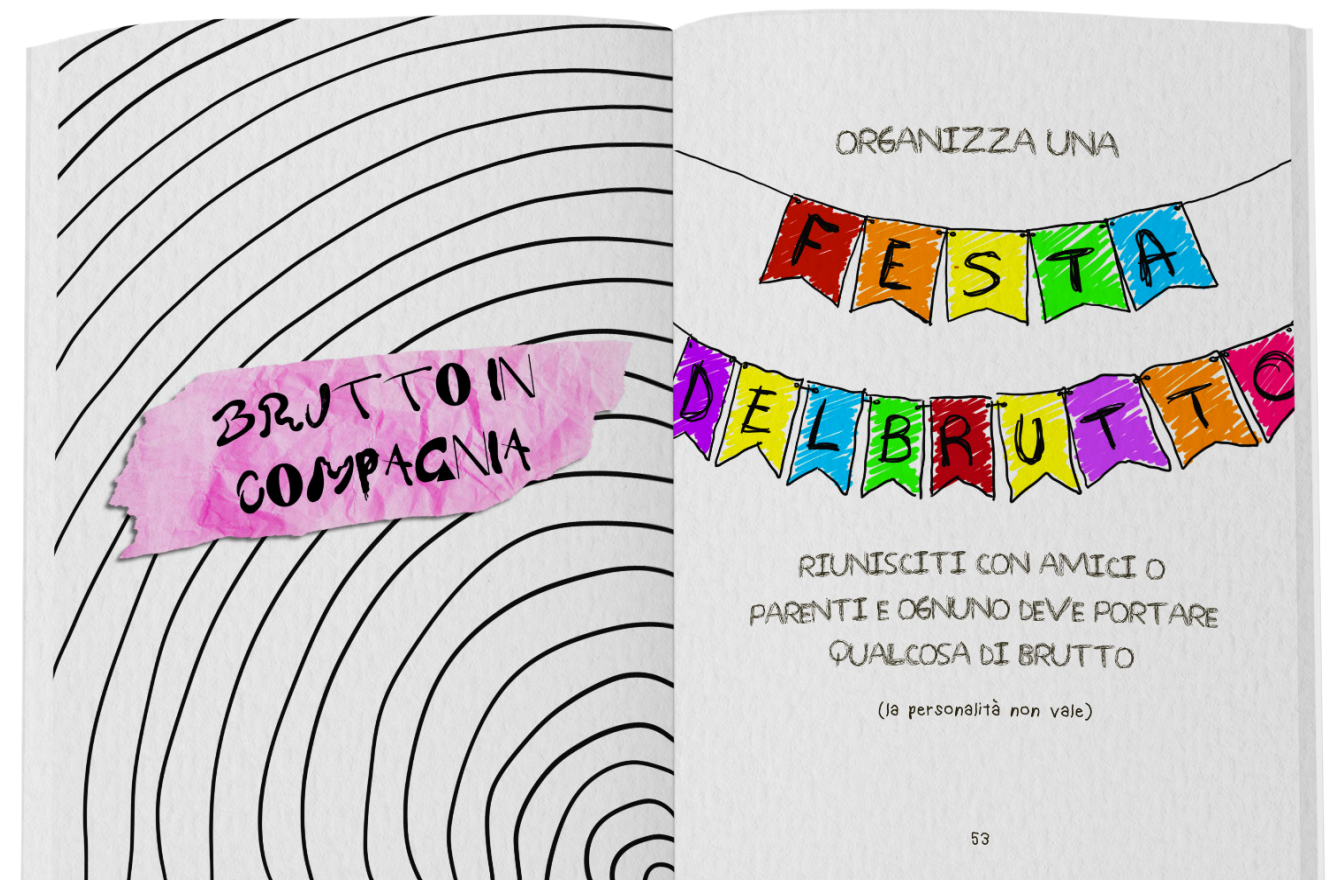 BRUTTO IN
COMPAGNIA
ORGANIZZA UNA
FESTA
DEL BRUTTO
RIUNISCITI CON AMICI O
PARENTI E OGNUNO DEVE PORTARE
QUALCOSA DI BRUTTO
(la personalità non vale)
53